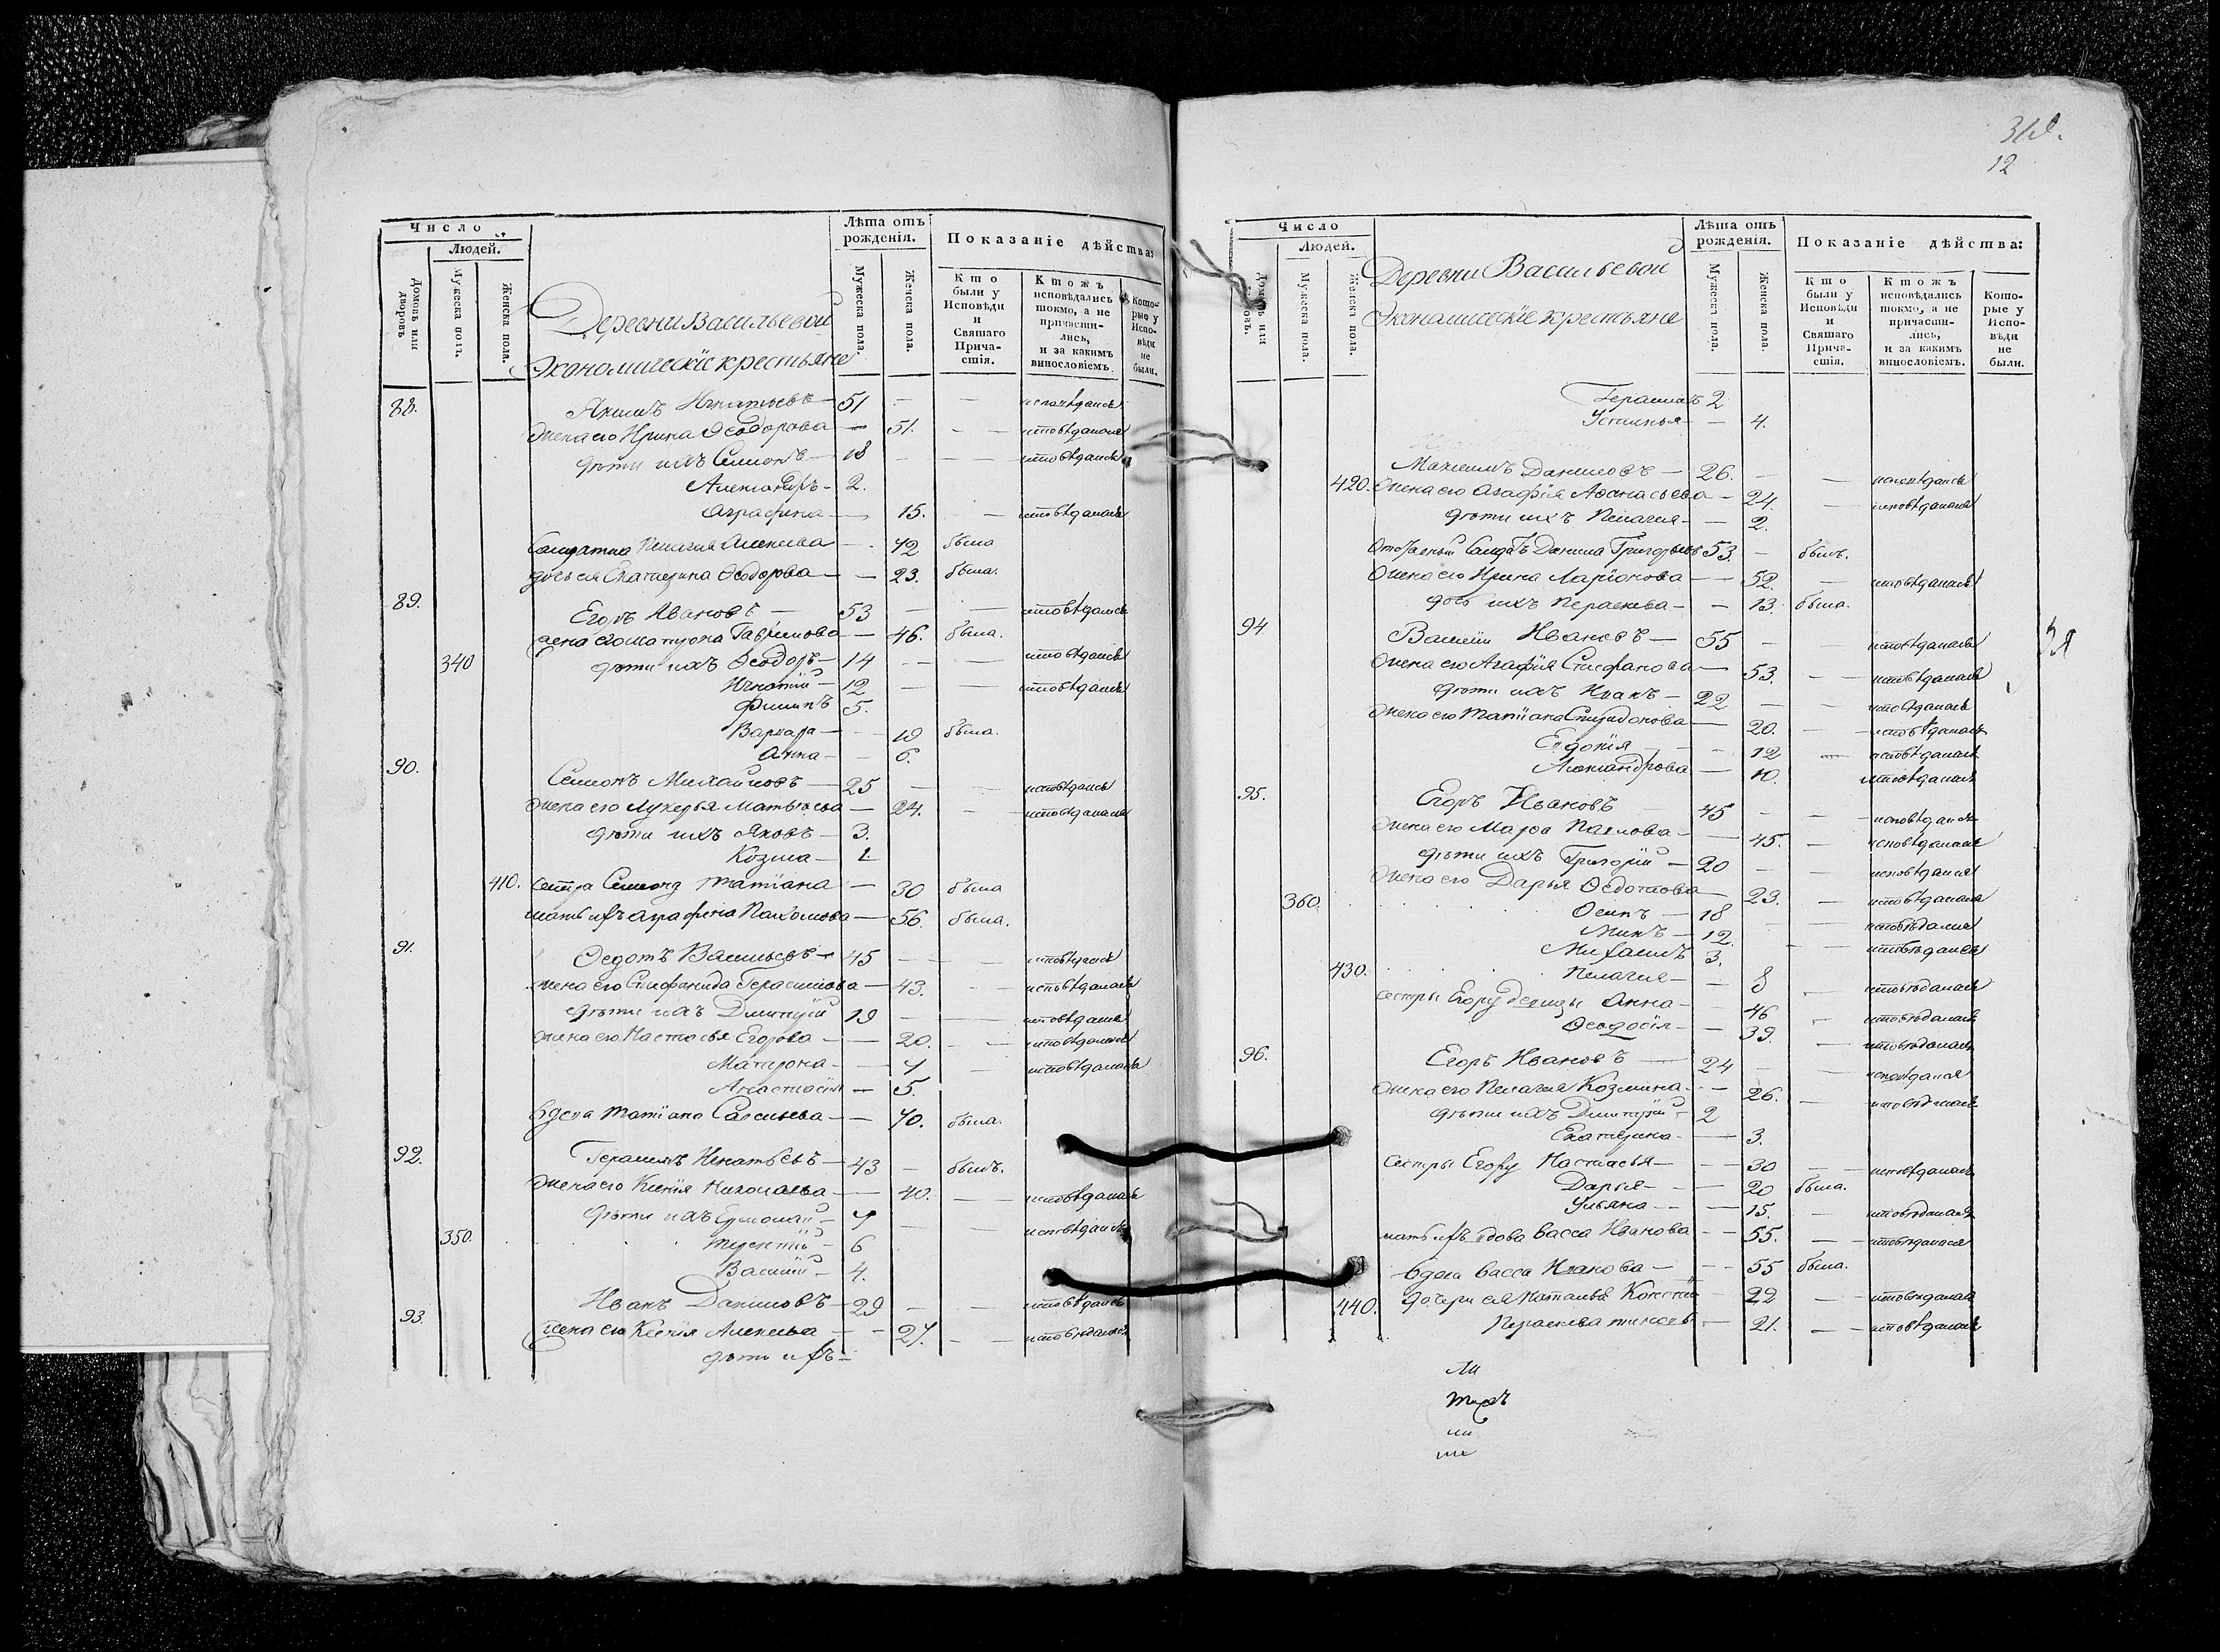 Число
Людей.
Домовъ или дворовъ
Мужеска пола.
Женска пола.
Деревни Васильевой
Экономическїе крестьяне
Лѣта отъ рожденія.
Мужеска пола.
Женска пола.
Показаніе дѣйства:
Кто были у Исповѣди и Святаго Причастія.
Ктожъ исповѣдались токмо, а не причастились, и за какимъ винословіемъ
Которые у Исповѣди не были.
88. Якимъ Игнатьевъ — 51 — — исповѣдался
жена его Ирина Ѳеодорова — 51. — — исповѣдалася
дѣти ихъ Семионъ — 18 — — исповѣдался
Александръ — 2.
Аграфена — 15. — исповѣдалася
Салдатка Пелагия Алексѣева — 42 была
дочь ея Екатерина Ѳеодорова — 23. была.
89. Егоръ Ивановъ — 53 — — исповѣдался
жена его Матрона Гаврилова — 46. была.
340 дѣти ихъ Ѳеодоръ — 14 — — исповѣдался
Игнатїй — 12 — — исповѣдался
Филипъ 5.
Варвара — 19 была.
Анна — 6.
90. Семионъ Михайловъ — 25 — — исповѣдался
жена его Лукерья Матвѣева — 24. — исповѣдалася
дѣти ихъ Яковъ — 3.
Козма — 1
410. сестра Семиону Матїана — 30 была
мать ихъ Аграфена Пахомова — 56. была.
91. Ѳедотъ Васильевъ — 45 — — исповѣдался
жена его Стефанида Герасимова — 43. — исповѣдалася
дѣти ихъ Димитрїй 19 — — исповѣдался
жена его Настасья Егорова — 20. — — исповѣдалася
Матрона — 7 — исповѣдалася
Анастасїя — 5.
вдова Татїана Савельева — 70. была.
92. Герасимъ Игнатьевъ — 43 — былъ.
жена его Ксенїя Николаева — 40. — — исповѣдалася
дѣти ихъ Ермолай — 7 — — исповѣдался
350. Терентїй — 6
Василий — 4.
93. Иванъ Даниловъ — 29 — — исповѣдался
жена его Ксенїя Алексѣева — 27. — — исповѣдалася
дѣти ихъ
12
Число
Людей.
Домовъ или дворовъ.
Мужеска пола.
Женска пола.
Деревни Васильевой
Экономическїе крестьяне
Лѣта отъ рожденія.
Мужеска пола.
Женска пола.
Показаніе дѣйства:
Кто были у Исповѣди и Святаго Причастія.
Ктожъ исповѣдались токмо, а не причастились, и за какимъ винословіемъ.
Которые у Исповѣди не были.
Герасимъ 2
Устинья — 4.
Махсимъ Даниловъ — 26. — — исповѣдался
420. жена его Агафїя Афанасьева — 24. — исповѣдалася
дѣти ихъ Пелагея — 2.
Отставный Салдатъ Данила Григорьевъ 53. — былъ.
жена его Ирина Ларїонова — 52. — исповѣдалася
дочь ихъ Пераскева — 13. была.
94 Василий Ивановъ — 55 — — исповѣдался
жена его Агафїя Стефанова — 53. — — исповѣдалася
дѣти ихъ Иванъ — 22 — — исповѣдался
жена его Татїана Спиридонова — 20. — — исповѣдалася
Евдокїя — 12 — исповѣдалася
Александрова — 10. исповѣдалася
95. Егоръ Ивановъ 45 — — исповѣдался
жена его Марѳа Павлова — 45. — исповѣдалася
дѣти ихъ Григорїй — 20 — исповѣдался
жена его Дарья Ѳедотова — 23. — исповѣдалася
360. Осипъ — 18 — исповѣдался
Минъ — 12. — — исповѣдался
Михаилъ 3.
430. Пелагея — 8 — исповѣдалася
сестры Егору девицы Анна — 46 — исповѣдалася
Ѳеодосїя — 39. — исповѣдалася
96. Егоръ Ивановъ — 24 — исповѣдался
жена его Пелагея Козмина — 26. — исповѣдалася
дѣти ихъ Димитрїй — 2
Екатерина — 3.
сестры Егору Настасья — 30 — — исповѣдалась
Дарья — 20 была.
Ульяна — 15. — исповѣдалася
мать ихъ вдова Васса Иванова — 55. — — исповѣдалася
вдова Васса Иванова — 55 была.
440. дочери ея Наталья 22 — исповѣдалася
Пераскева 21. — — исповѣдалася
ли
ли